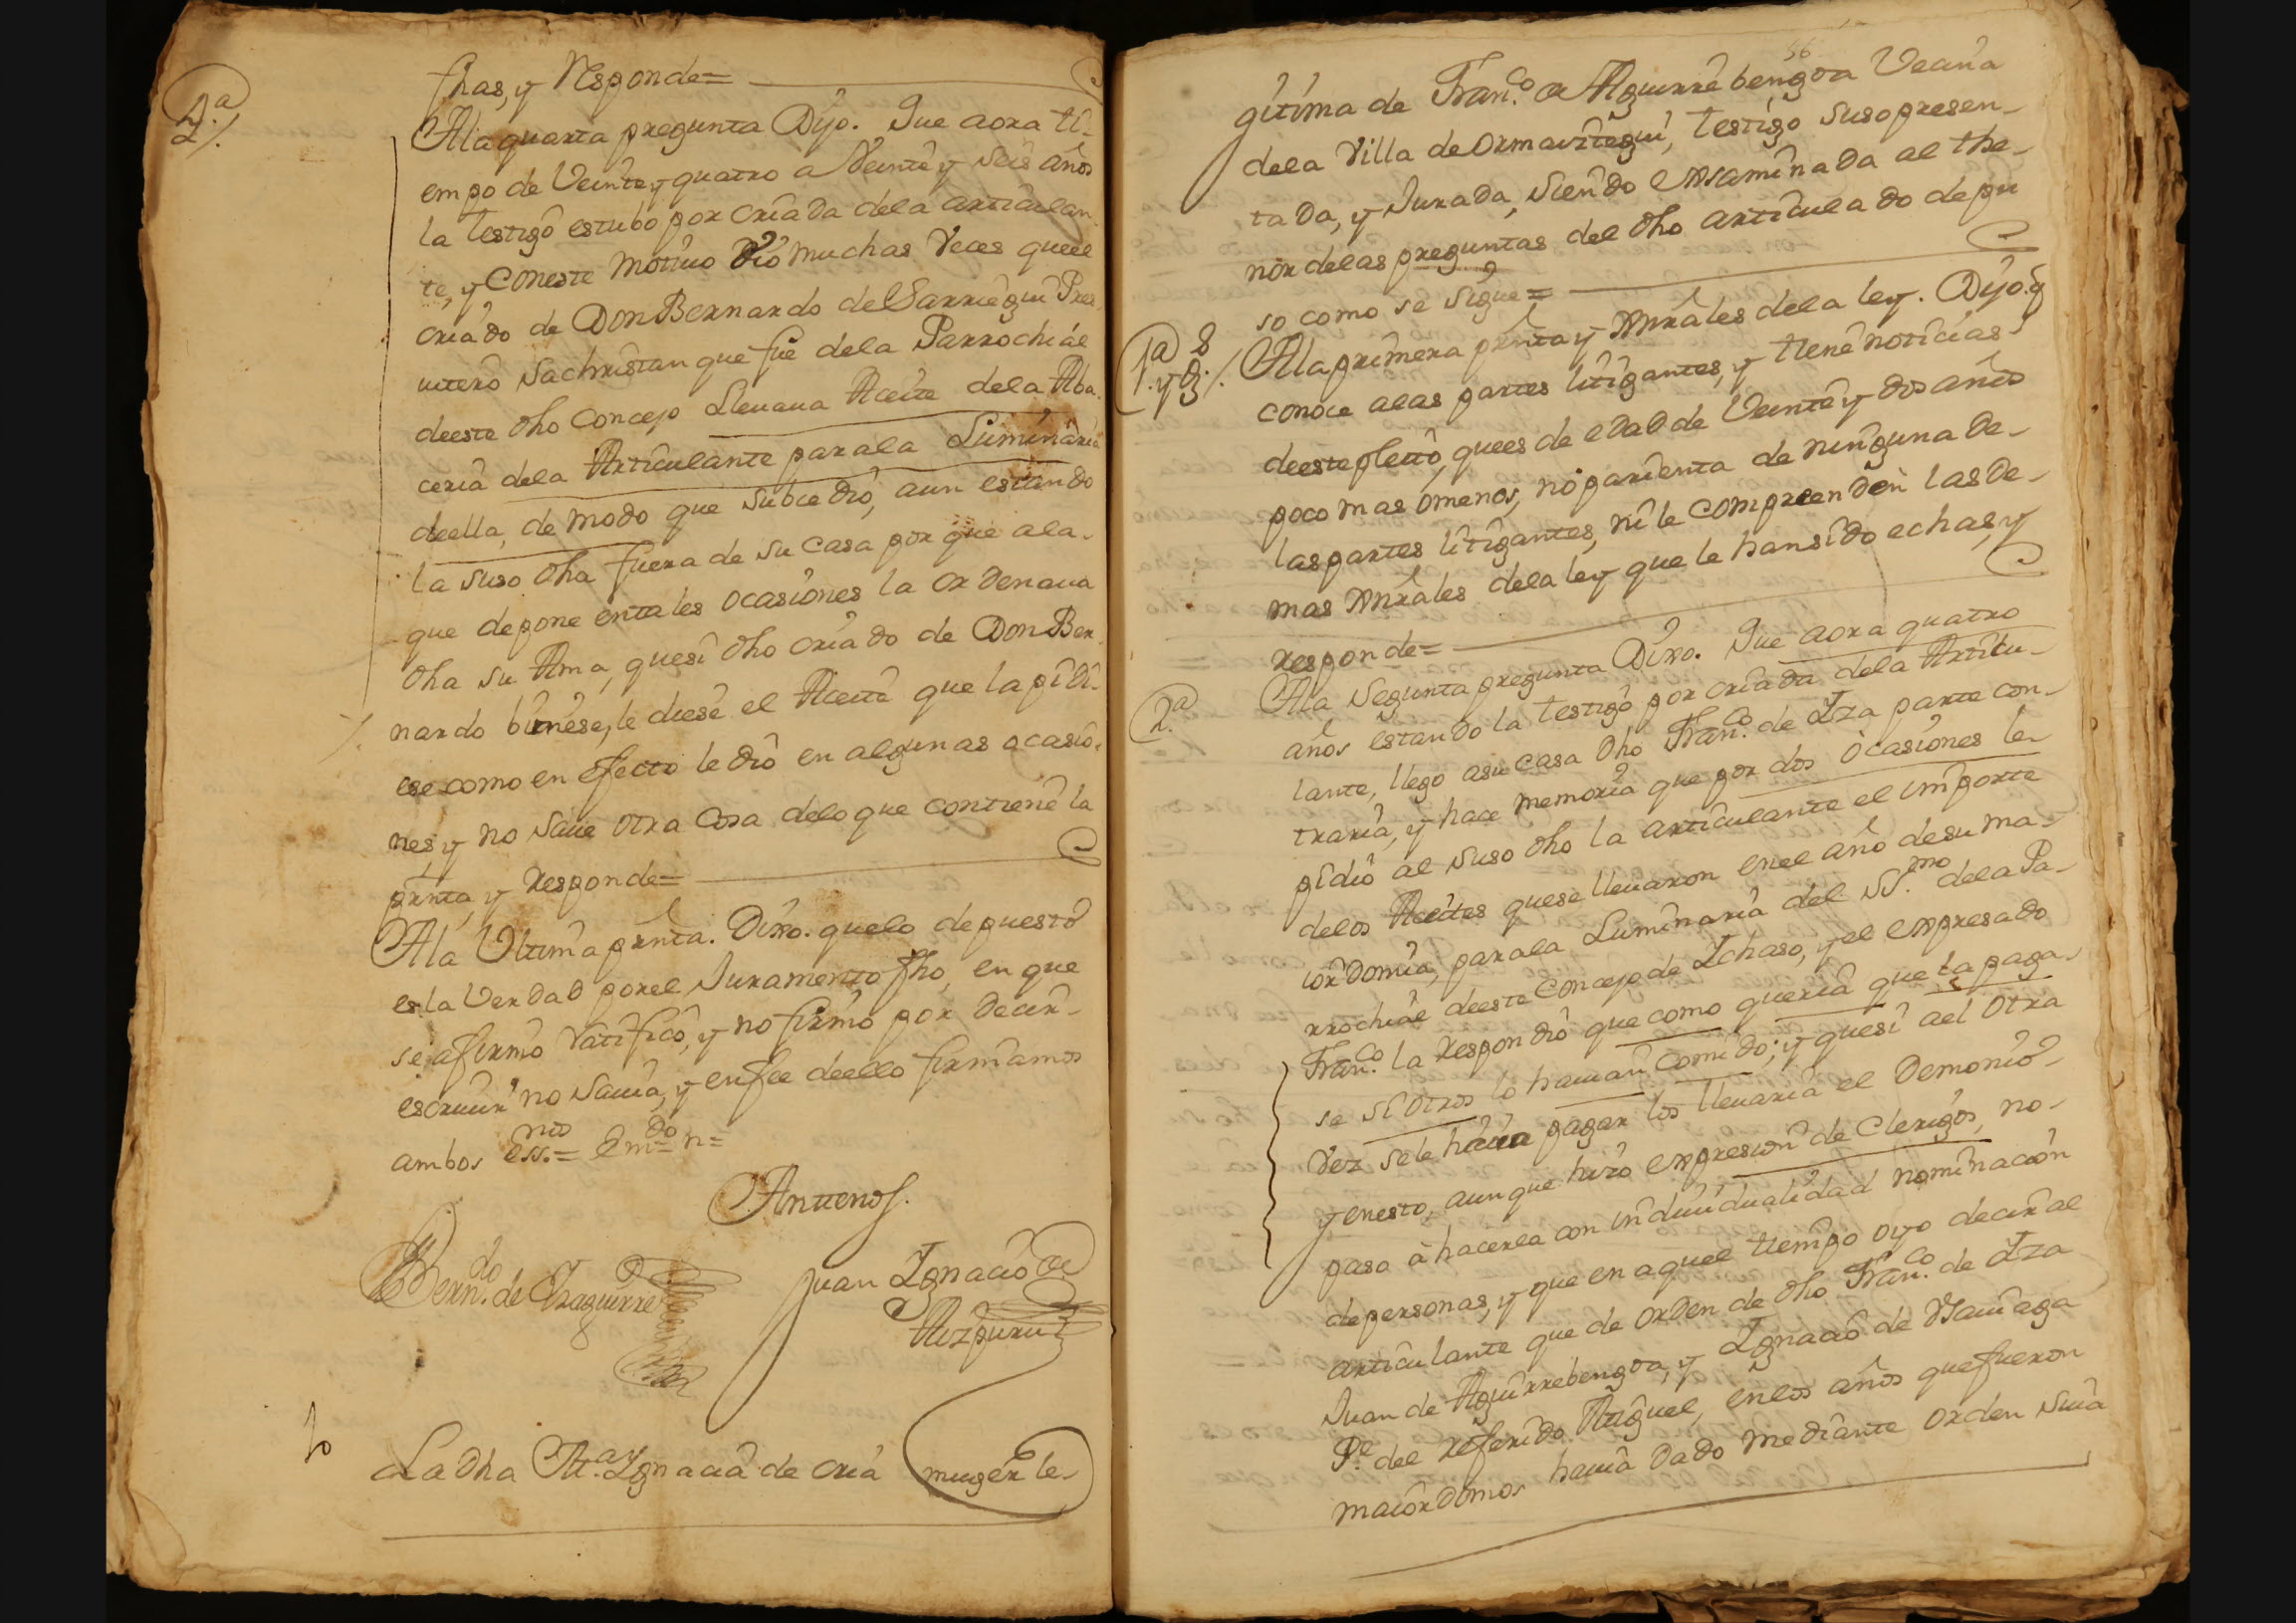 4.ª
fhas, y Responde=
Ala quarta pregunta Dijo. Que aora ti-
empo de Veinte y quatro a Veinte y Seis años
la testigo estubo por criada dela articulan
te, y con este motiuo vio muchas Veces que el
criado de Don Bernardo de Sarriegui Pres
uitero Sachristan que fue dela Parrochiâl
deeste dho Concejo Lleuaua Aceite dela Aba
ceria dela Articulante para la Luminaria
de ella, de modo que Subcedió, aun estando
la suso dha fuera de su casa por que ala
que depone en tales ocasiones la ordenaua
dha su Ama, quesi dho criado de Don Ber
nardo biniese, le diese el Aceite que la pidi-
ese como en efecto le dió en algunas ocasio-
nes, y no Saue otra Cosa delo que contiene la
prnta, y Responde=
Ala Vltima prnta. Dixo. quelo depuesto
es la Verdad por el Juramento fho, en que
se afirmó Ratificó, y no firmó por decir
escriuir no Sauia, y en fee de ello firmamos
ambos ess.nos = Em.do n=
Antenos.
Bern.do de Yzaguirre
Juan Ygnacio de
Aizpuru
La dha M.a Ygnacia de Oria muger le-
56
gitima de Fran.co de Aguirrebengoa Vecina
dela Villa de Ormaiztegui, testigo suso presen-
tada, y Jurada, siendo exsaminada al the-
nor delas preguntas del dho articulado depu
so como se sigue=
1.ª y Gs
Ala primera prnta y Gnrâles dela ley. Dijo q
conoce alas partes litigantes, y tiene noticias
deeste pleito, quees de edad de Veinte y dos años
poco mas ó menos, no parienta de ninguna de
las partes litigantes, ni le compreenden las de-
mas Gnrâles dela ley que le han sido echas, y
Responde=
2.ª
Ala Segunta pregunta Dixo. Que aora quatro
años estando la testigo por criada dela Articu-
lante, llego asu casa dho Fran.co de Yza parte con-
traria, y hace memoria que por dos ocasiones le
pidió al suso dho la articulante el importe
delos Aceites quese lleuaron en el año de su ma-
iordomia, para la Luminaria del SS.mo dela Pa-
rrochiâl deeste Concejo de Ychaso, y el expresado
Fran.co la Respondió que como queria que la paga-
se si otros lo hauian comido; y quesi ael otra
vez sele hacia pagar los lleuaria el Demonio
y enesto, aunque hizo expresion de Clerigos, no
paso à hacerla con indiuidualidad nominación
de personas, y que en aquel tiempo oyo decir al
articulante que de orden de dho Fran.co de Yza
Juan de Aguirrebengoa, y Ygnacio de Usauiaga
P.e del referido Miguel, enlos años que fueron
maiordomos hauia dado mediante orden Suia